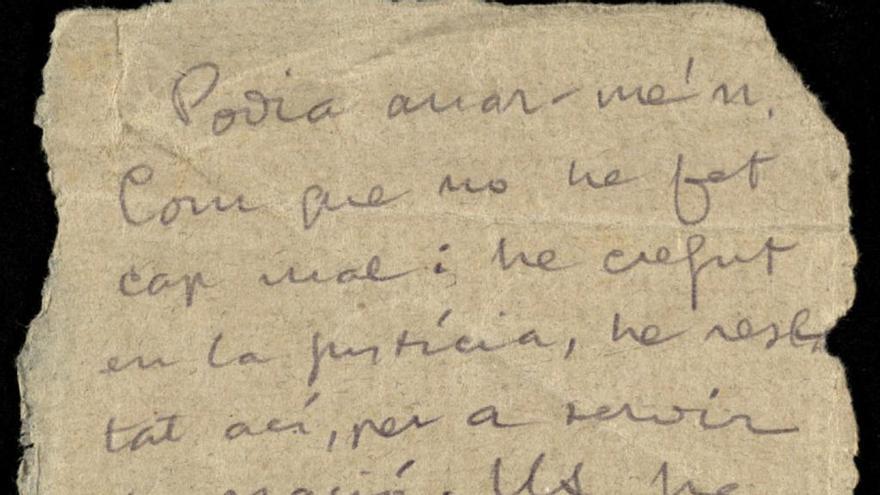 Podia anar-me'n.
Com que no he fet
cap mal i he cregut
en la justícia, he res
tat ací, per a servir
Us he